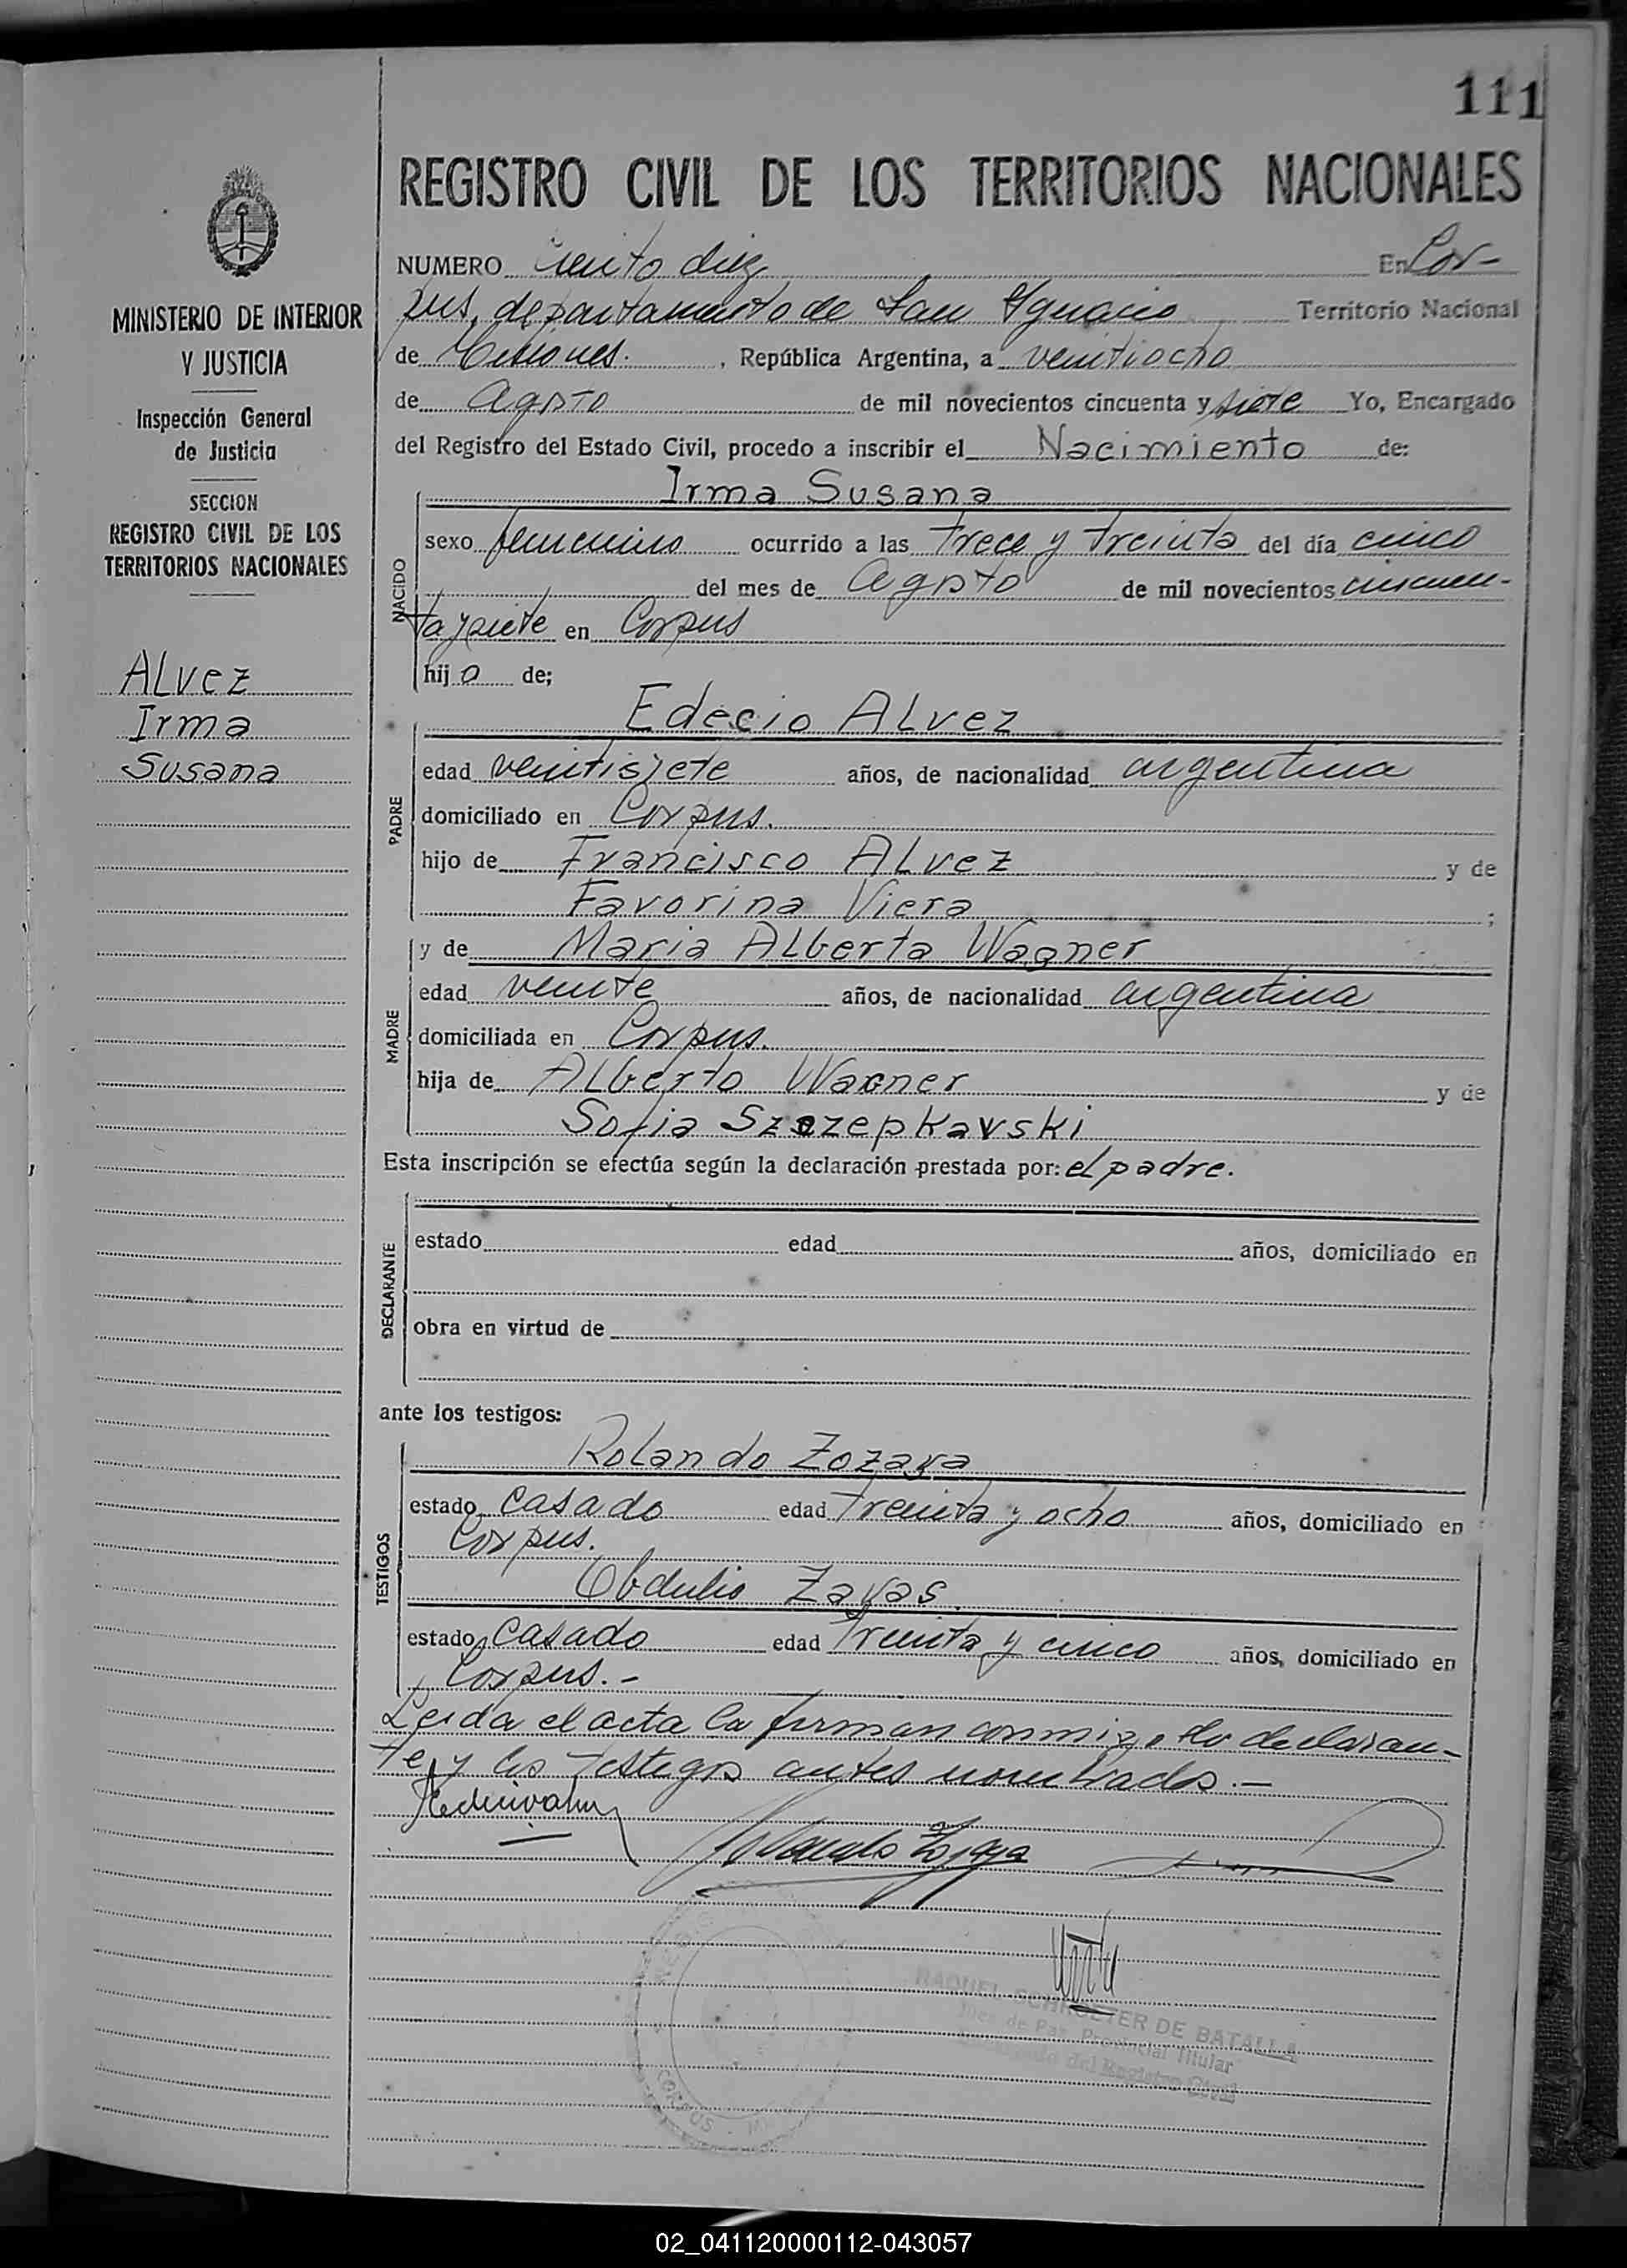 111
REGISTRO CIVIL DE LOS TERRITORIOS NACIONALES
MINISTERIO DE INTERIOR
Y JUSTICIA
Inspección General
de Justicia
SECCION
REGISTRO CIVIL DE LOS
TERRITORIOS NACIONALES
Alvez
Irma
Susana
NUMERO ciento diez En Cor-
pus, departamento de San Ygnacio Territorio Nacional
de Misiones. , República Argentina, a veintiocho
de Agosto de mil novecientos cincuenta y siete Yo, Encargado
del Registro del Estado Civil, procedo a inscribir el Nacimiento de:
NACIDO
Irma Susana
sexo femenino ocurrido a las trece y treinta del día cinco
del mes de Agosto de mil novecientos cincuen-
ta y siete en Corpus
hij a de;
PADRE
Edecio Alvez
edad veintisiete años, de nacionalidad argentina
domiciliado en Corpus.
hijo de Francisco Alvez y de
Favorina Viera ;
MADRE
y de Maria Alberta Wagner
edad veinte años, de nacionalidad argentina
domiciliada en Corpus.
hija de Alberto Wagner y de
Sofia Szczepkavski
Esta inscripción se efectúa según la declaración prestada por: el padre.
DECLARANTE
estado edad años, domiciliado en
obra en virtud de
ante los testigos:
TESTIGOS
Rolando Zozaya
estado casado edad treinta y ocho años, domiciliado en
Corpus.
Obdulio Zayas.
estado casado edad treinta y cinco años, domiciliado en
Corpus.-
Leida el acta la firman conmigo el declaran-
te y los testigos antes nombrados.-
Rolando Zozaya
RAQUEL SCHROETER DE BATALLA
Juez de Paz Provincial Titular
Encargado del Registro Civil
CORPUS
02_041120000112-043057